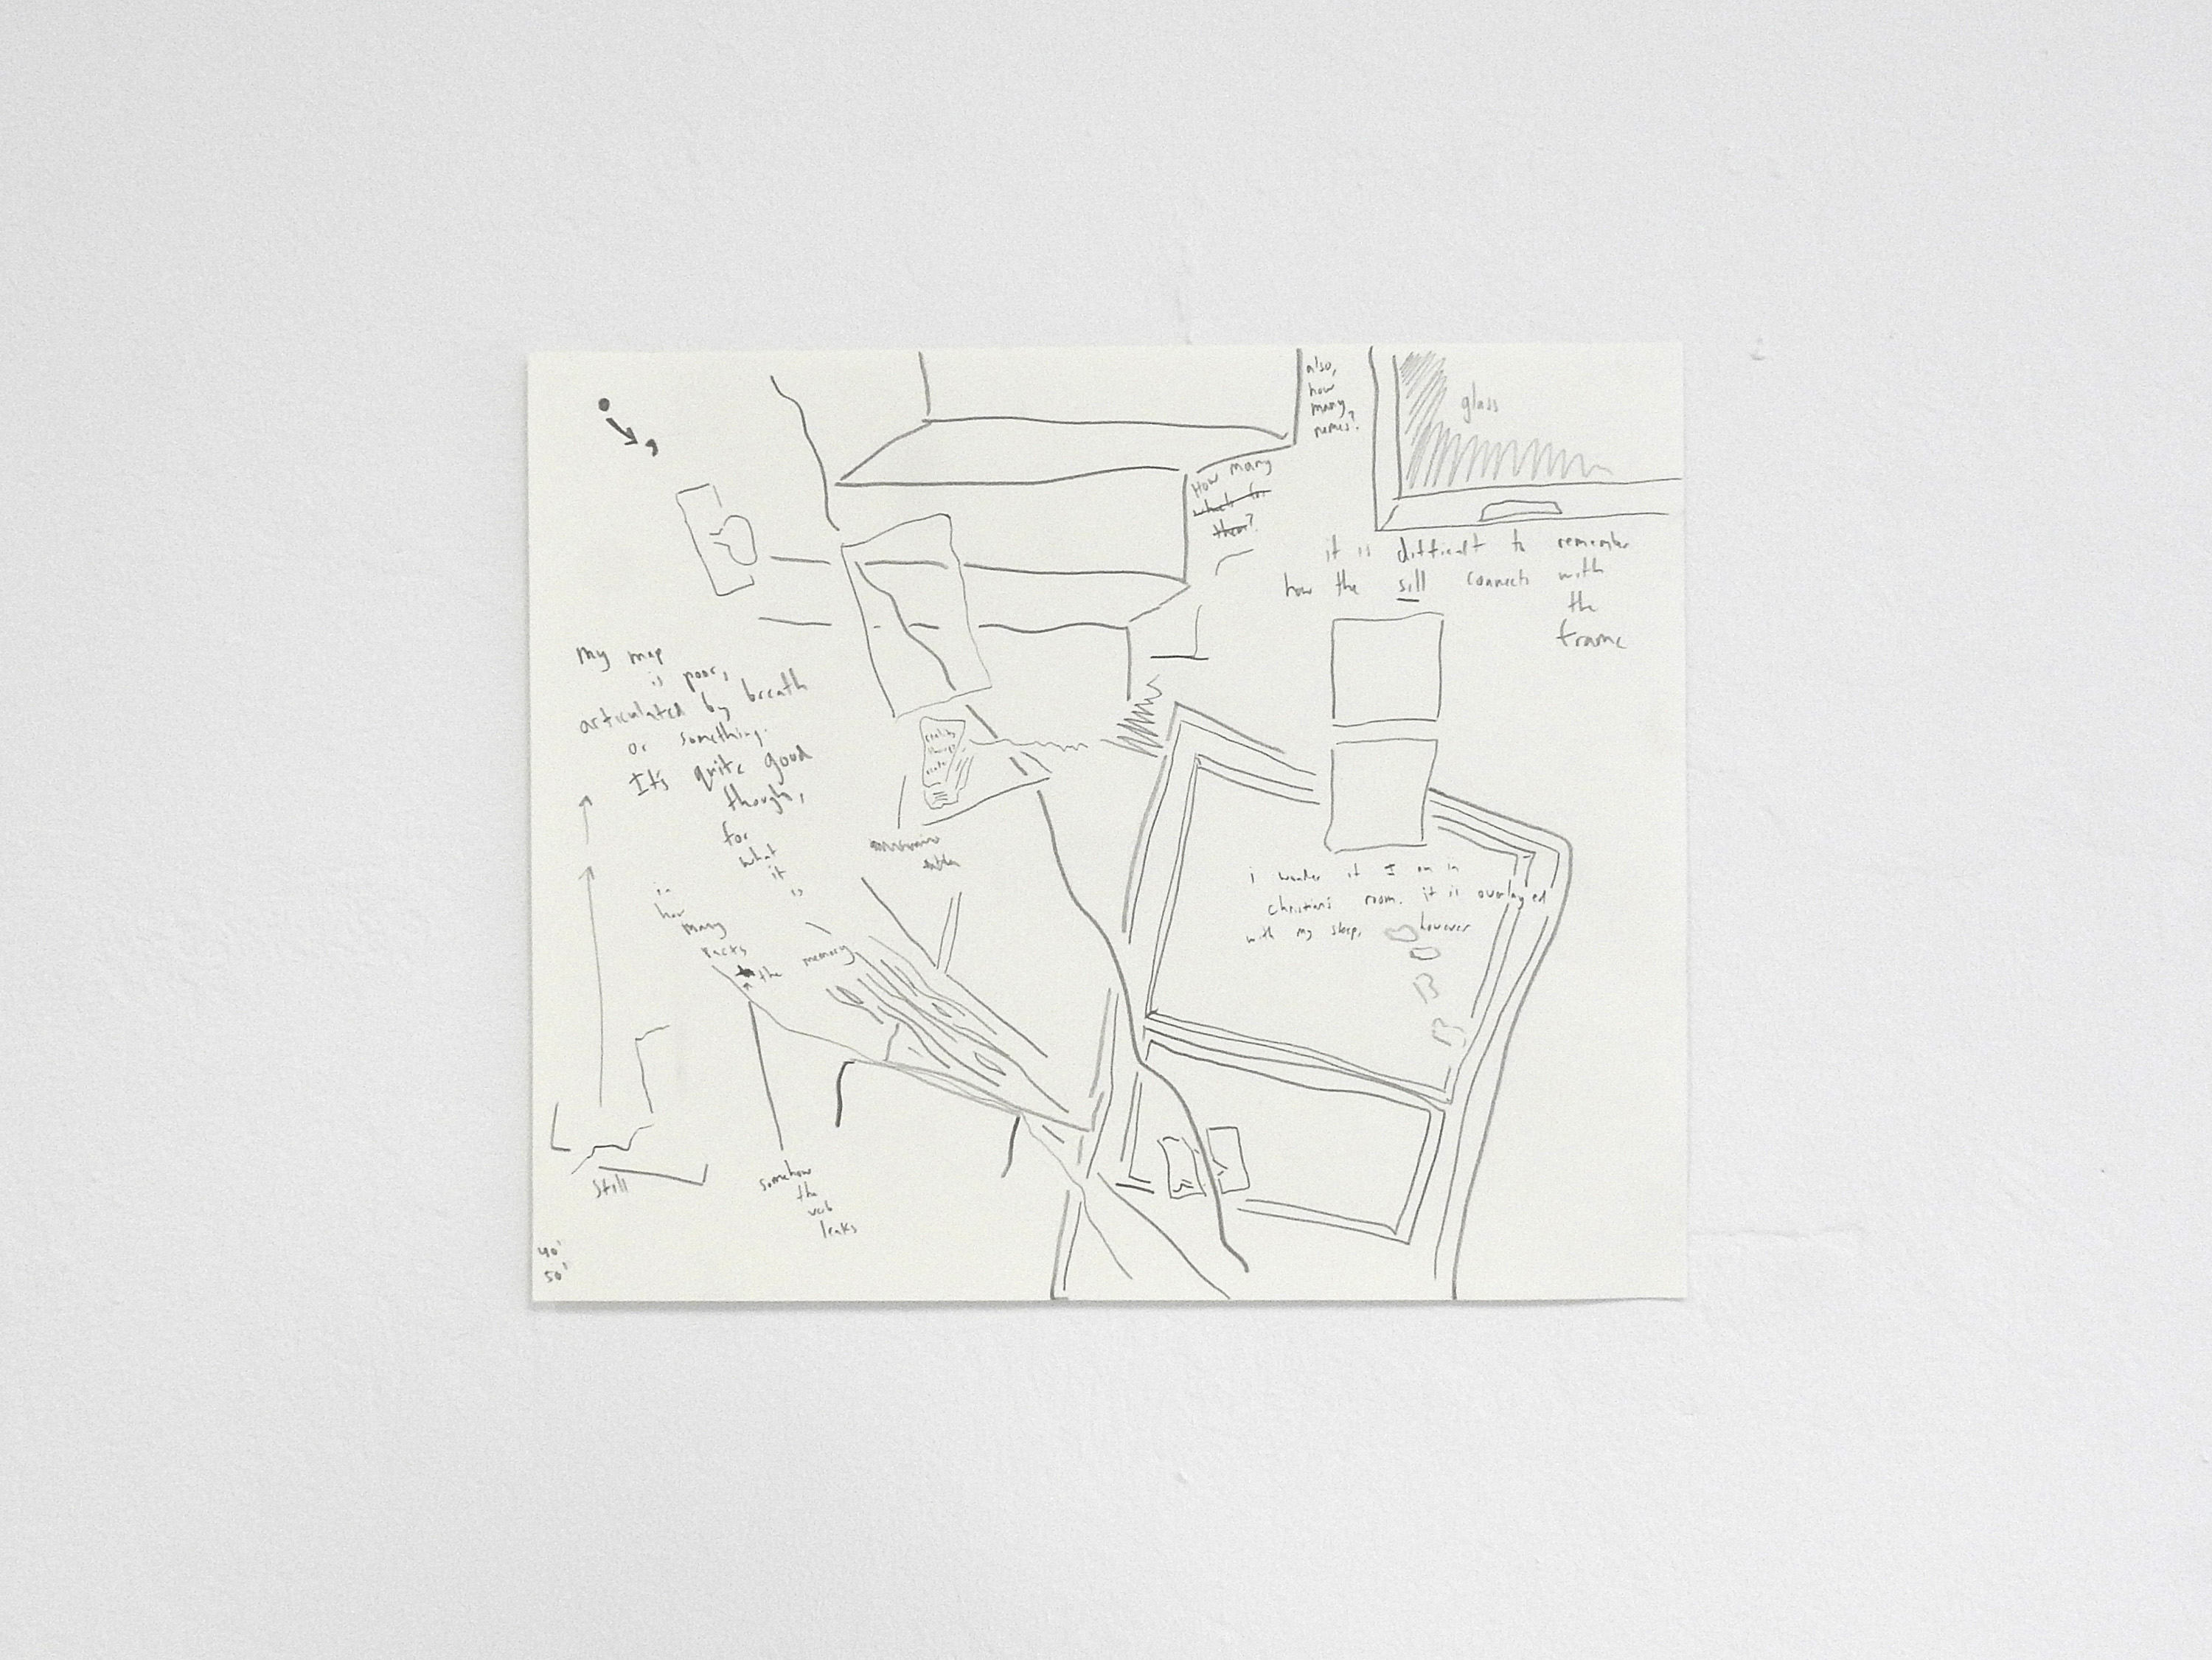 also,
how
many
names?
glass
How many
what for
them?
it is difficult to remember
how the sill connects with
the
frame
my map
is poor,
articulated by breath
or something.
It's quite good
though,
for
what
it
is
i wonder if I am in
christian's room. it is overlayed
with my sleep, however
in
how
many
the memory
still
somehow
the
leaks
40'
50'